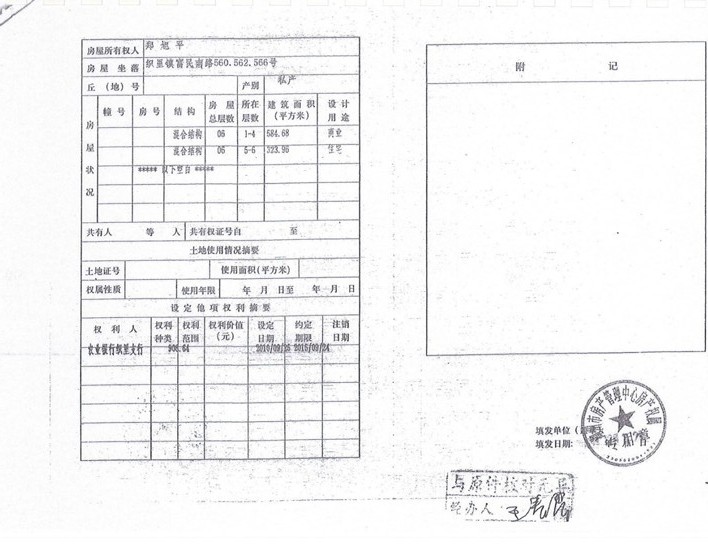 房屋所有权人 郑旭平
房屋坐落 织里镇富民南路560.562.566号
丘(地)号 产别 私产
房屋状况
幢号 房号 结构 房屋总层数 所在层数 建筑面积(平方米) 设计用途
混合结构 06 1-4 584.68 商业
混合结构 06 5-6 323.96 住宅
***** 以下空白 *****
共有人 等 人 共有权证号自 至
土地使用情况摘要
土地证号 使用面积(平方米)
权属性质 使用年限 年 月 日至 年 月 日
设定他项权利摘要
权利人 权利种类 权利范围 权利价值(元) 设定日期 约定期限 注销日期
农业银行织里支行 908.64 2010/09/25 2015/09/24
附 记
市房产管理中心房产
专用章
填发单位(
填发日期:
与原件核对无异
经办人